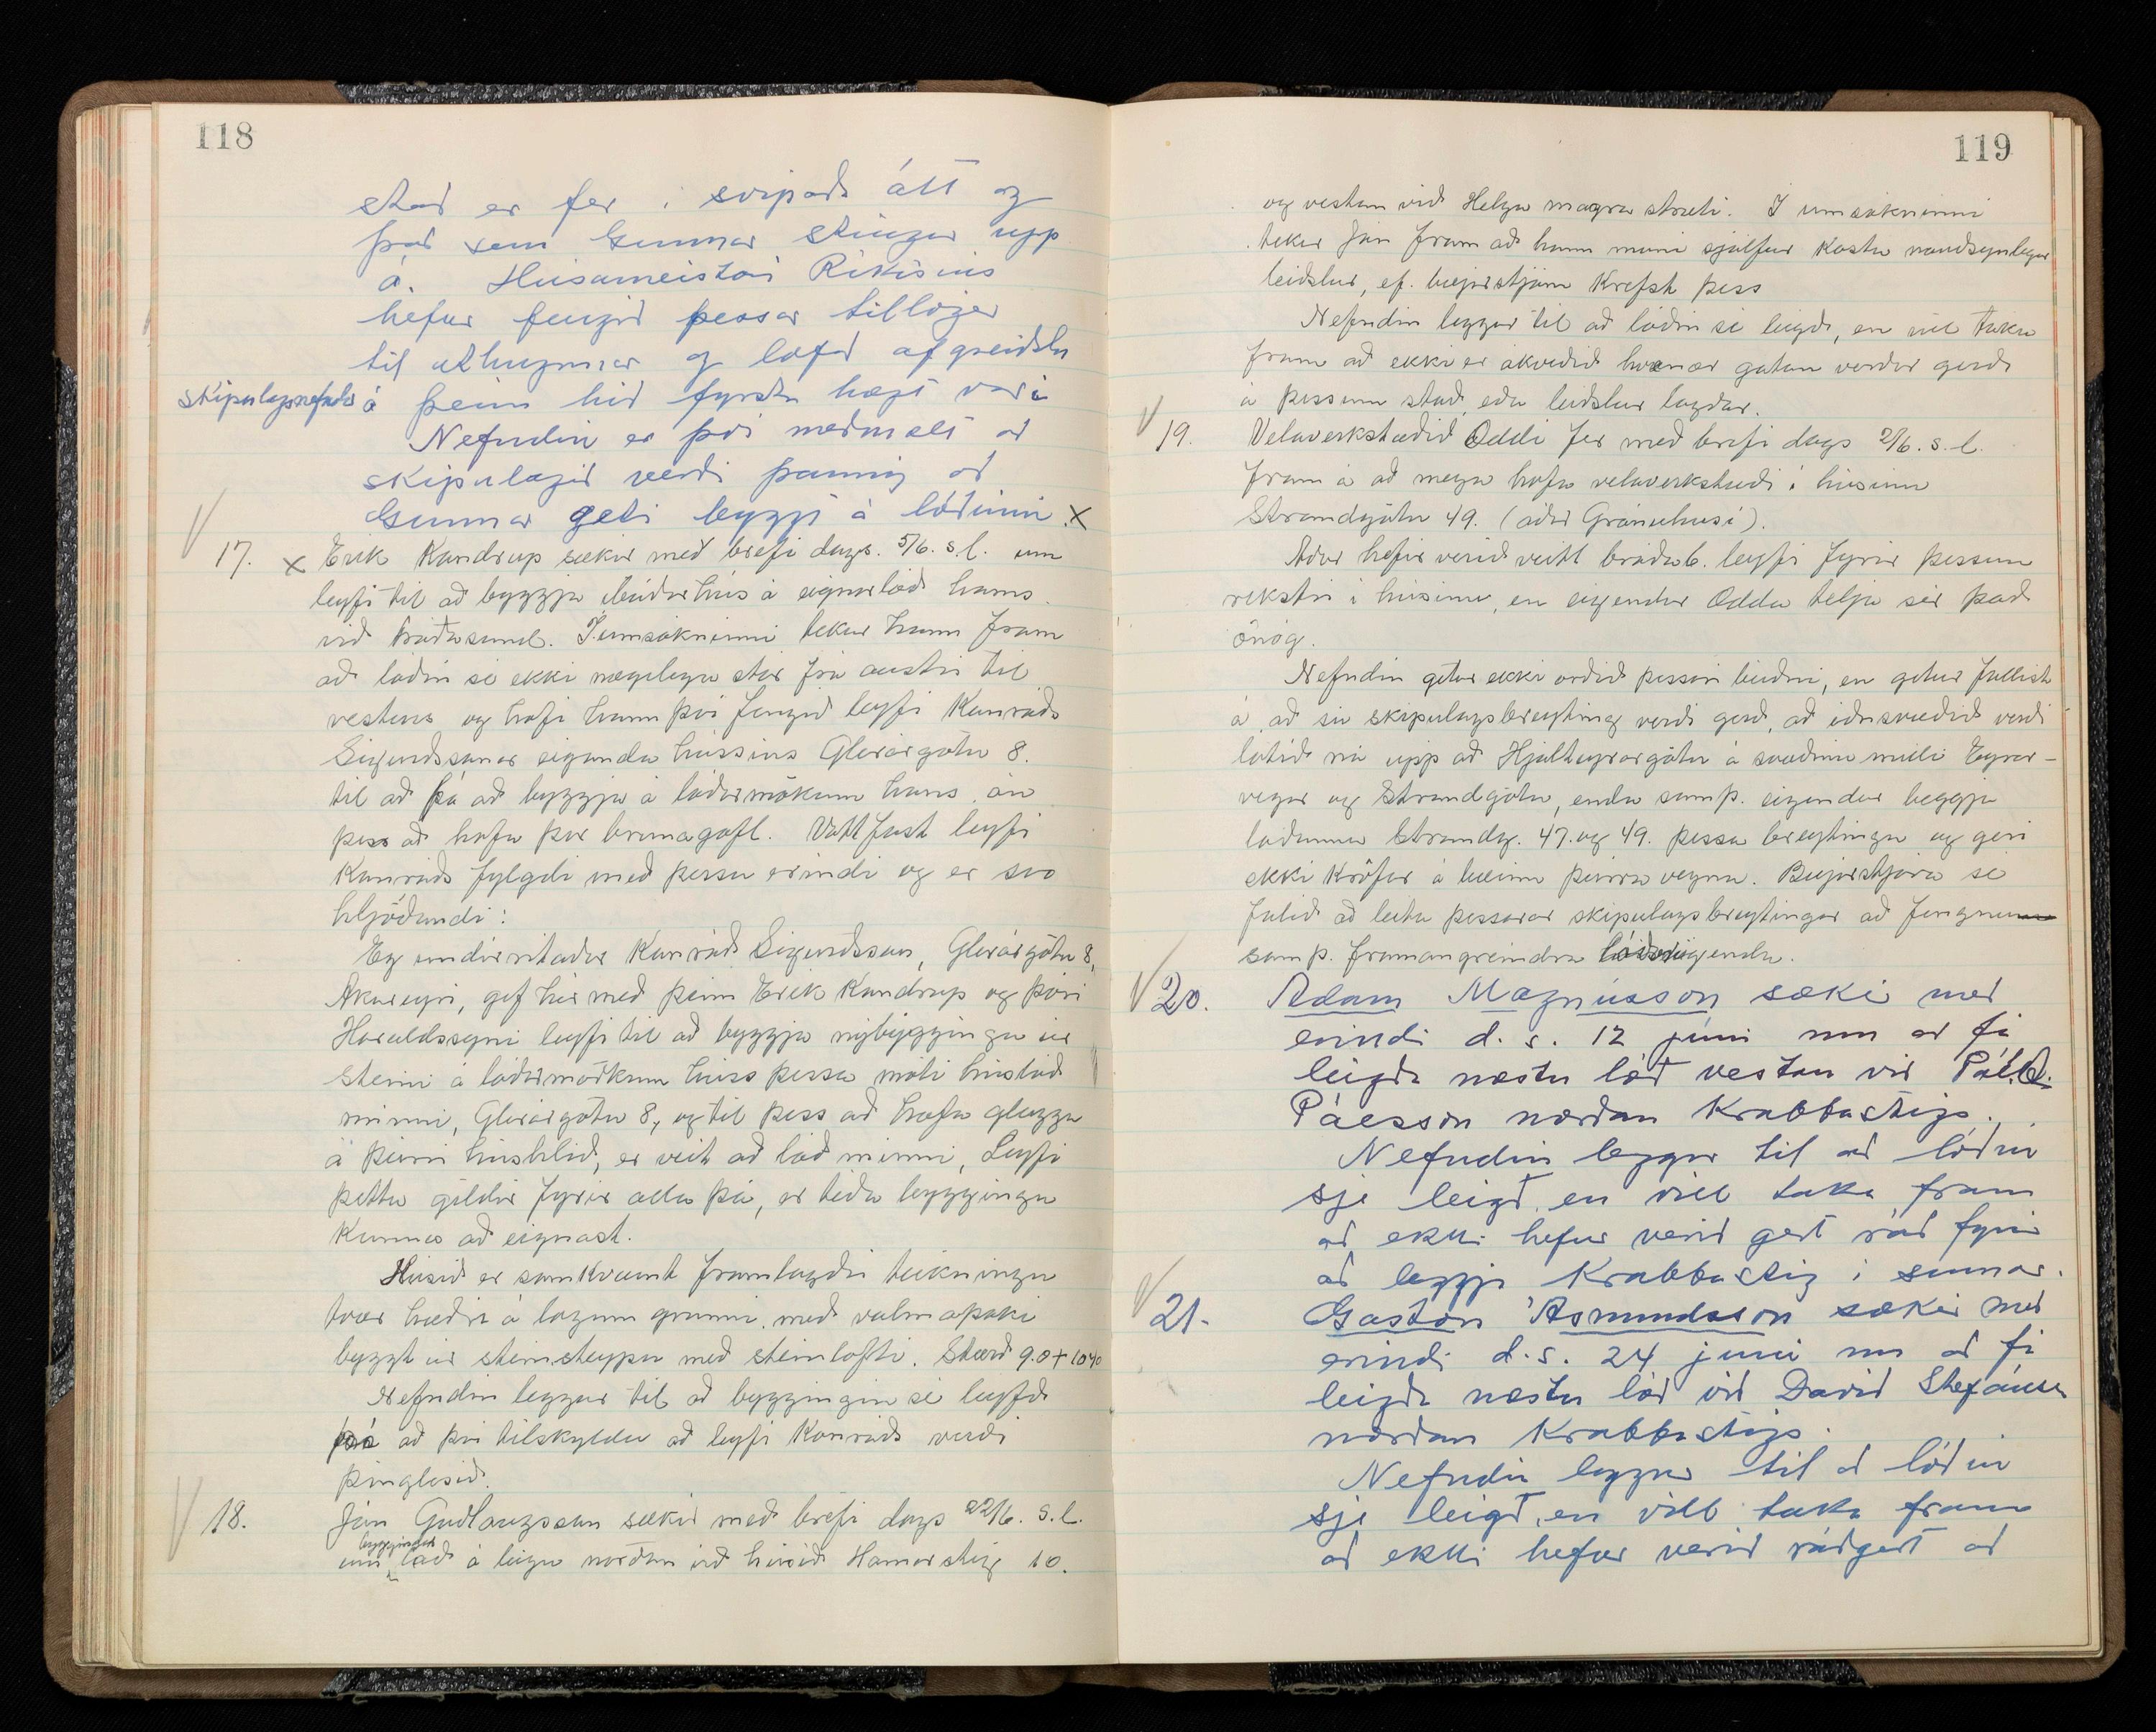 118
stað er fer í svipaða átt og
það sem Gunnar stingur upp
á. Húsameistari Ríkisins
hefur fengið þessar tillögur
til athugunar og lofað afgreiðslu
skipulagsnefndar á þeim hið fyrsta hægt væri
Nefndin er því meðmælt að
skipulagið verði þannig að
Gunnar geti byggt á lóðinni. x
17. x Erik Kondrup sækir með brefi dags. 5/6. s.l. um
leyfi til að byggja íbúðarhús á eignarlóð hans
við Gráðasund. Í umsókninni tekur hann fram
að lóðin sé ekki nægilega stór frá austri til
vesturs og hafi hann því fengið leyfi Konráðs
Sigurðssonar eiganda hússins Glerárgötu 8.
til að fá að byggja á lóðarmörkum hans, án
þess að hafa þar brunagafl. Vottfast leyfi
Konráðs fylgdi með þessu erindi og er svo
hljóðandi:
Eg undirritaður Konráð Sigurðsson, Glerárgötu 8,
Akureyri, gef hér með þeim Erik Kondrup og Þóri
Haraldssyni leyfi til að byggja nýbyggingu úr
steini á lóðarmörkum húss þessa móti húslóð
minni, Glerárgötu 8, og til þess að hafa glugga
á þeirri húshlið, er veit að lóð minni, Leyfi
þetta gildir fyrir alla þá, er téða byggingu
kunna að eignast.
Húsið er samkvæmt framlagðri teikningu
tvær hæðir á lágum grunni, með valmaþaki
byggt úr steinsteypu með steinlofti. Stærð 9.0 + 10.40
Nefndin leggur til að byggingin sé leyfð
að því tilskyldu að leyfi Konráðs verði
þinglesið.
18. Jón Guðlaugsson sækir með brefi dags 22/6. s.l.
byggingar
um lóð á leigu norðan við húsið Hamarstíg 10.
119
og vestan við Helga magra stræti. Í umsókninni
tekur Jón fram að hann muni sjálfur kosta nauðsynlegar
leiðslur, ef bæjarstjórn krefst þess
Nefndin leggur til að lóðin sé leigð, en vill taka
fram að ekki er ákveðið hvenær gatan verður gerð
á þessum stað, eða leiðslur lagðar.
19. Velaverkstæðið Oddi fer með brefi dags 2/6. s.l.
fram á að mega hafa velaverkstæði í húsinu
Strandgötu 49. (áður Gránuhúsi).
Áður hefir verið veitt bráðab. leyfi fyrir þessum
rekstri í húsinu, en eigendur Odda telja sér það
ónóg.
Nefndin getur ekki orðið þessari beiðni, en getur fallist
á að sú skipulagsbreyting verði gerð, að iðnsvæðið verði
látið ná upp að Hjalteyrargötu á svæðinu milli Eyrar-
vegar og Strandgötu, enda samþ. eigendur beggja
lóðanna Strandg. 47. og 49. þessa breytingu og geri
ekki kröfur á bæinn þeirra vegna. Bæjarstjóra sé
falið að leita þessarar skipulagsbreytingar að fengnu
samþ. framangreindra lóðareigenda.
20. Adam Magnússon sæki með
erindi d.s. 12 júní um að fá
leigða næstu lóð vestan við Pál
Pálsson norðan Krabbastígs.
Nefndin leggur til að lóðin
sje leigð, en vill taka fram
að ekki hefur verið gert ráð fyrir
að leggja Krabbastíg í sumar.
21. Gaston Ásmundsson sækir með
erindi d.s. 24 júní um að fá
leigða næstu lóð við Davíð Stefánsson
norðan Krabbastígs.
Nefndin leggur til að lóðin
sje leigð, en vill taka fram
að ekki hefur verið ráðgert að